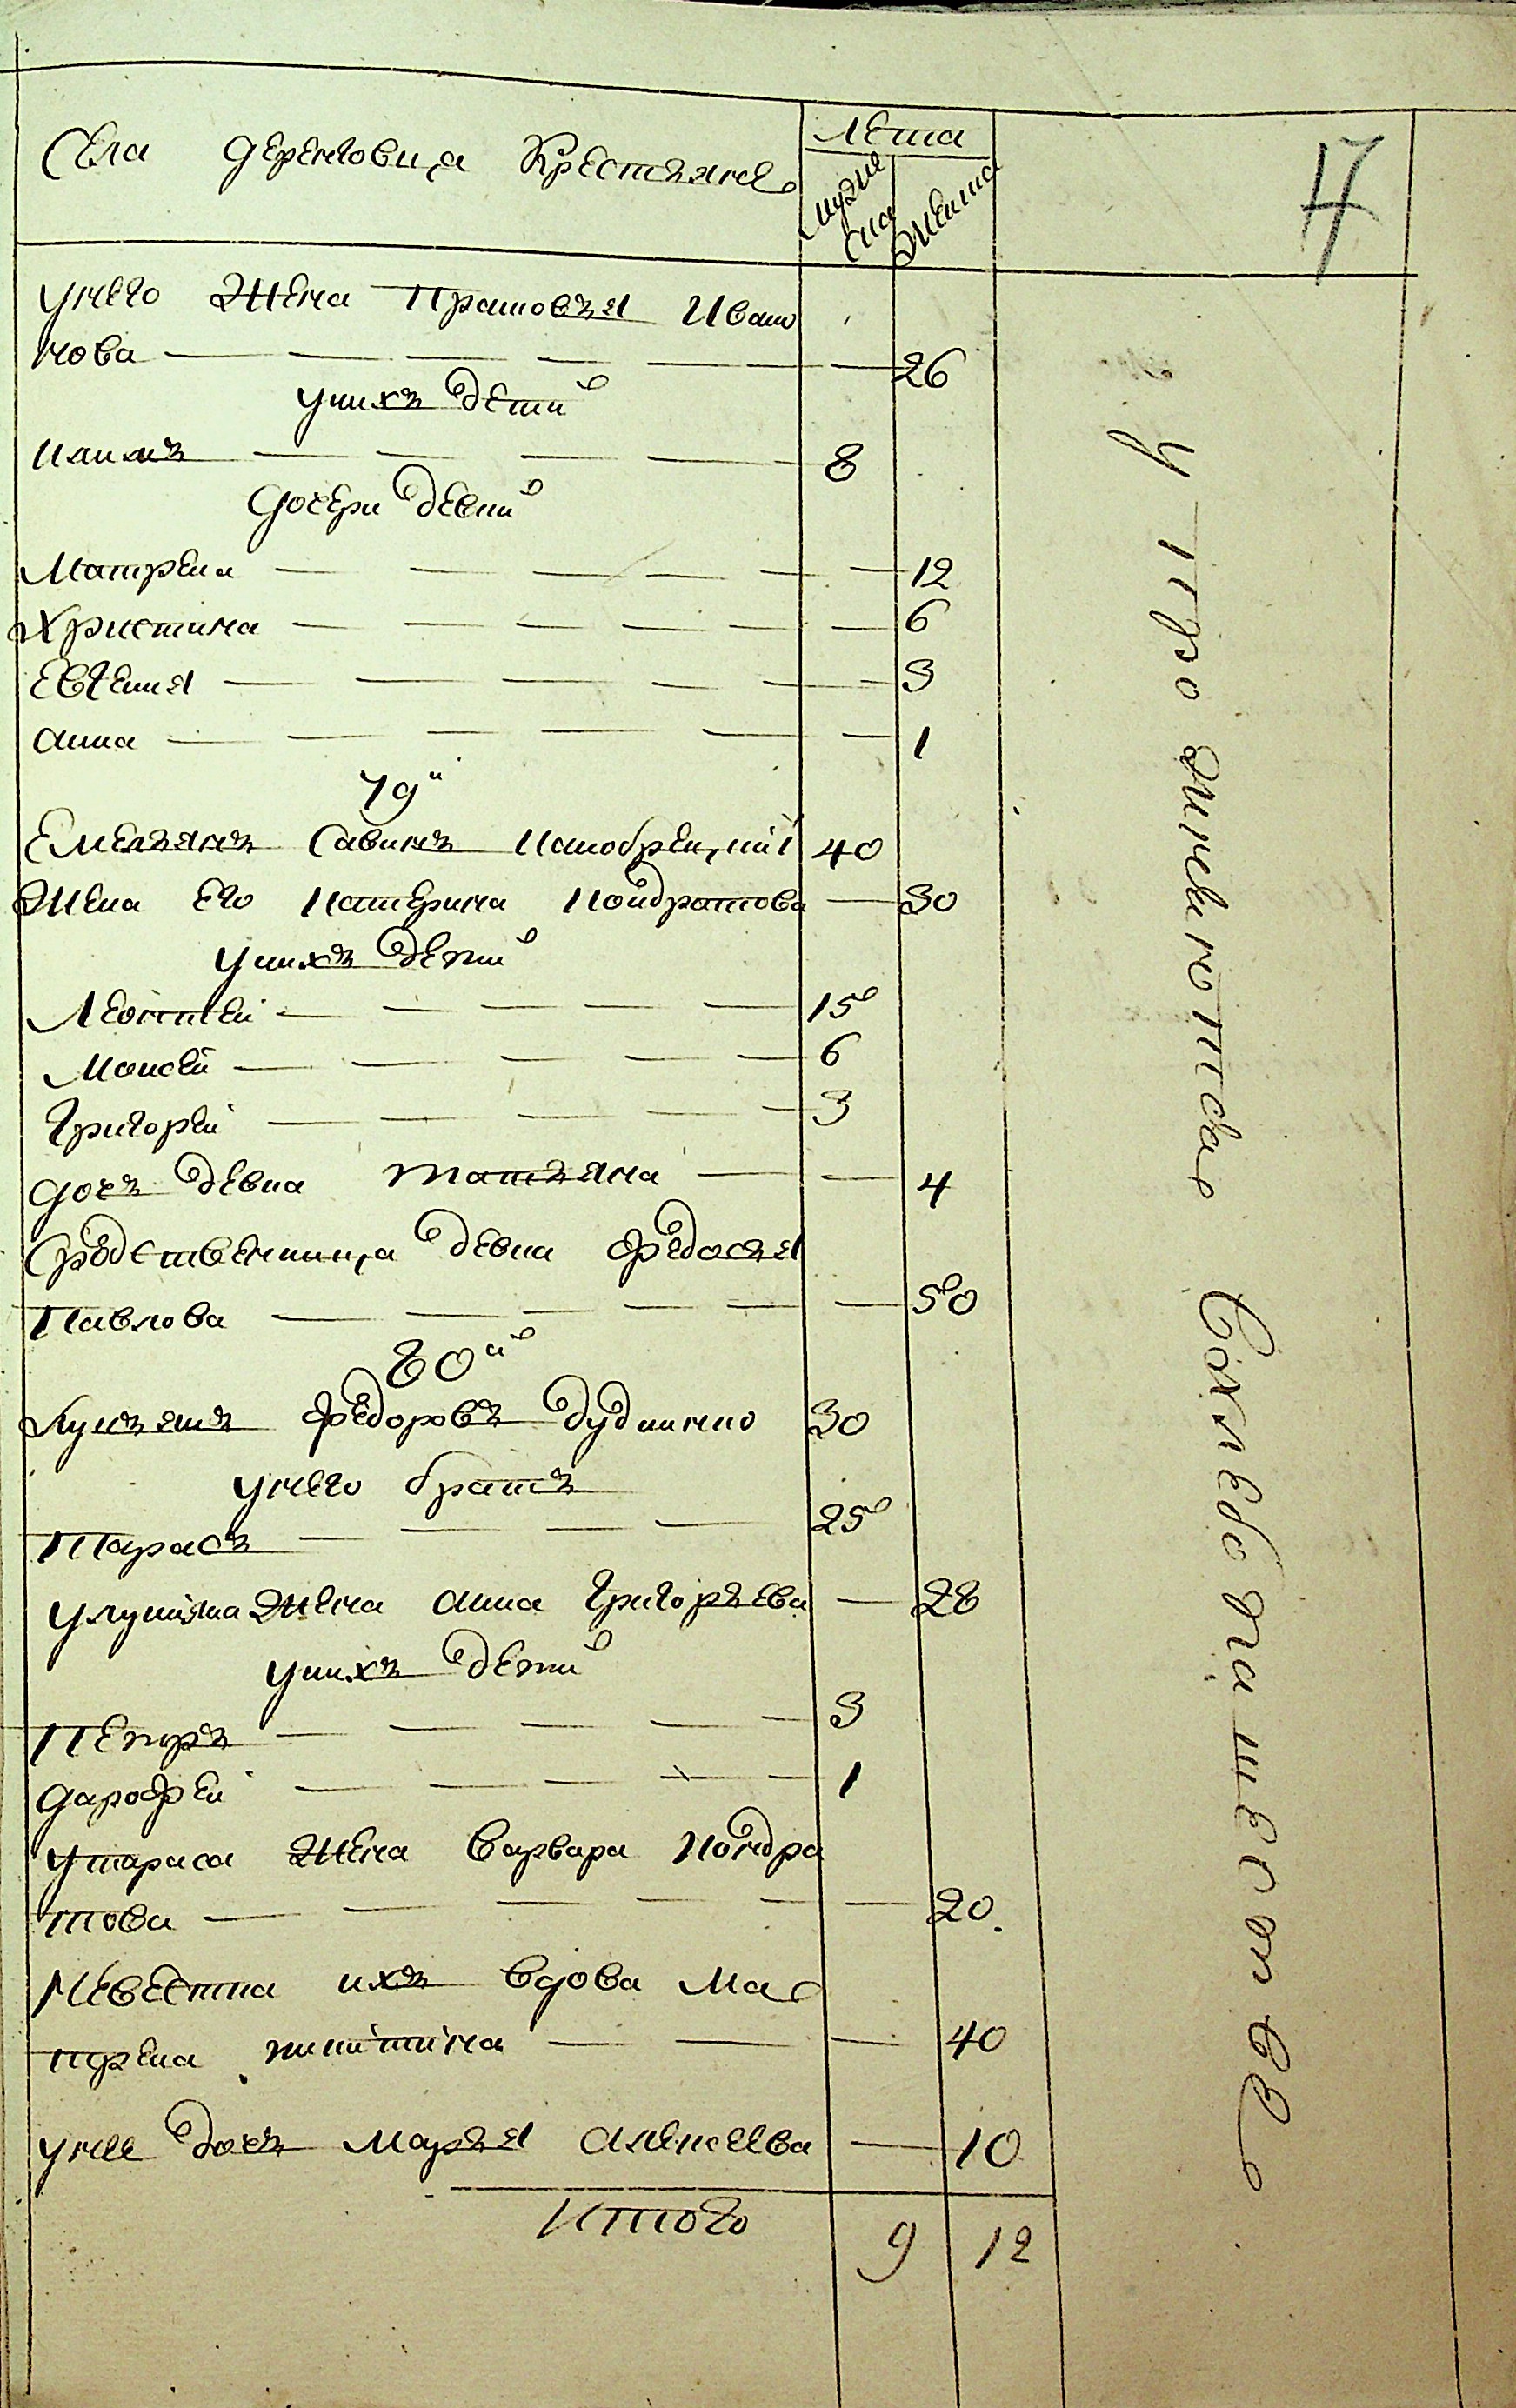 Села Деренговица Крестьяне
Лета
Мужеска
Женска
17
у него Жена Прасковья Ивано
нова 26
у них дети
Кирилъ 8
Дочери девки
Матрена 12
Христина 6
Евгения 3
Анна 1
79й
Емельянъ Савинъ
40
Жена Его Катерина Кондратова 30
у них дети
Леонтей 15
Моисей 6
Григорей 3
Дочь девка Татьяна 4
Сродственница девка Федосья
Павлова 50
80й
Лукьянъ Федоровъ Дудник 30
у него братъ
Тарасъ 25
у Лукияна Жена Анна Григорьева 28
у них дети
Петръ 3
Дарофей 1
у Тараса Жена Варвара Кондра
това 20
Невестка ихъ вдова Ма
трена Никитина 40
у нее дочь Марья Алексеева 10
Итого 9 12